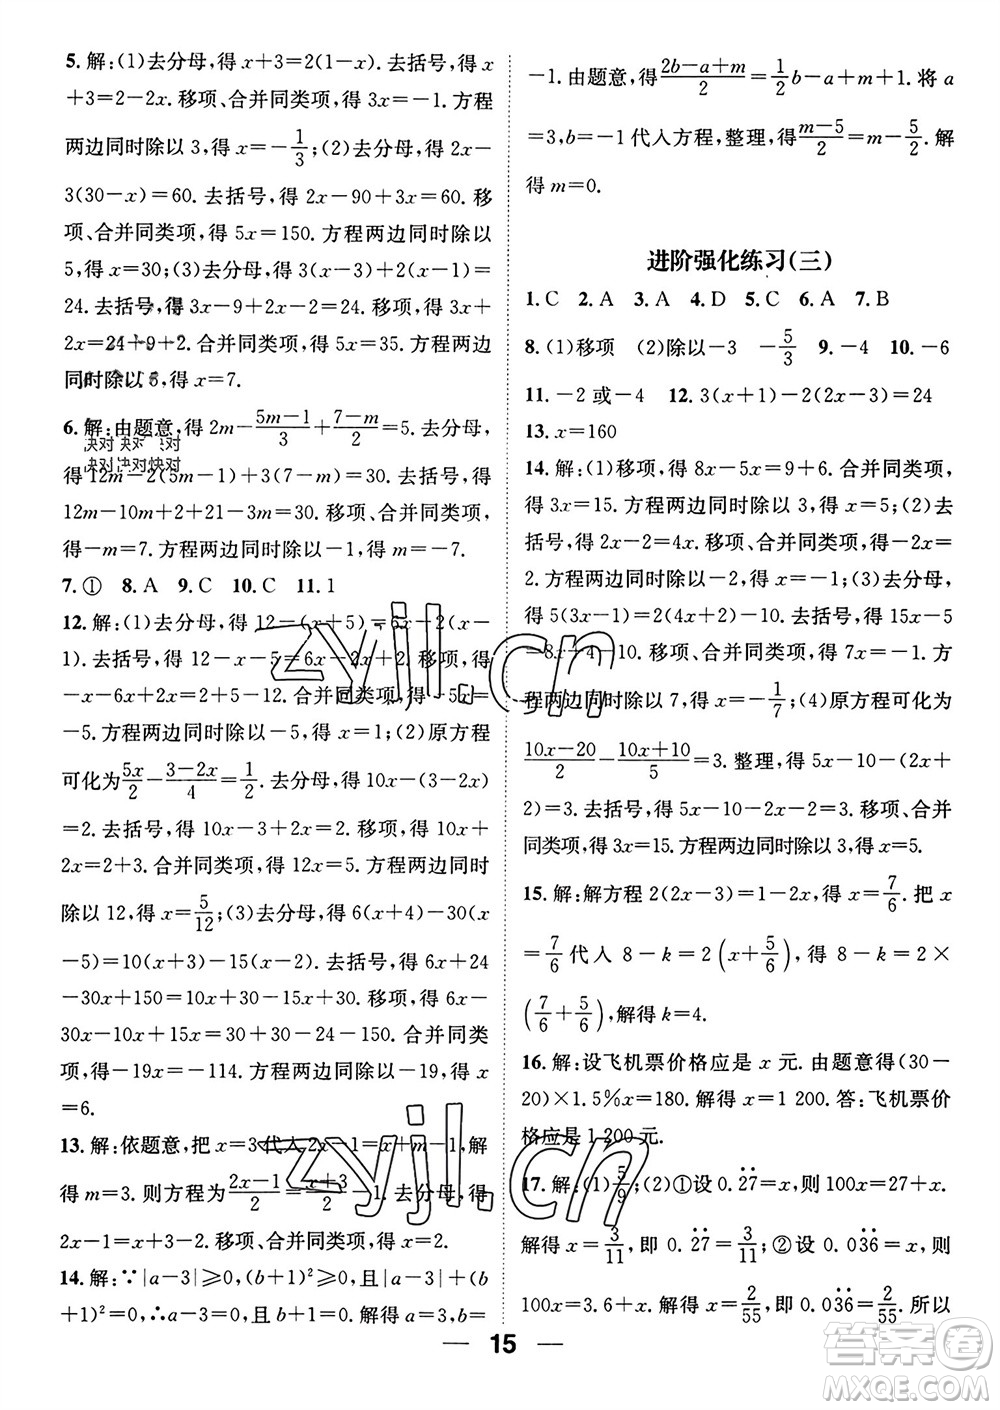 5. 解:(1)去分母,得 x+3=2(1-x). 去括号,得 x
+3=2-2x. 移项、合并同类项,得 3x=-1. 方程
两边同时除以 3,得 x=-1/3;(2)去分母,得 2x-
3(30-x)=60. 去括号,得 2x-90+3x=60. 移
项、合并同类项,得 5x=150. 方程两边同时除以
5,得 x=30;(3)去分母,得 3(x-3)+2(x-1)=
24. 去括号,得 3x-9+2x-2=24. 移项,得 3x+
2x=24+9+2. 合并同类项,得 5x=35. 方程两边
同时除以 5,得 x=7.
6. 解:由题意,得 2m-(5m-1)/3+(7-m)/2=5. 去分母,
得 12m-2(5m-1)+3(7-m)=30. 去括号,得
12m-10m+2+21-3m=30. 移项、合并同类项,
得-m=7. 方程两边同时除以-1,得 m=-7.
7. ① 8. A 9. C 10. C 11. 1
12. 解:(1)去分母,得 12-(x+5)=6x-2(x-
1). 去括号,得 12-x-5=6x-2x+2. 移项,得
-x-6x+2x=2+5-12. 合并同类项,得-5x=
-5. 方程两边同时除以-5,得 x=1;(2)原方程
可化为5x/2-(3-2x)/4=1/2. 去分母,得 10x-(3-2x)
=2. 去括号,得 10x-3+2x=2. 移项,得 10x+
2x=2+3. 合并同类项,得 12x=5. 方程两边同时
除以 12,得 x=5/12;(3)去分母,得 6(x+4)-30(x
-5)=10(x+3)-15(x-2). 去括号,得 6x+24
-30x+150=10x+30-15x+30. 移项,得 6x-
30x-10x+15x=30+30-24-150. 合并同类
项,得-19x=-114. 方程两边同时除以-19,得 x
=6.
13. 解:依题意,把 x=3 代入 2x-1=x+m-1,解
得 m=3. 则方程为(2x-1)/2=(x+3)/2-1. 去分母,得
2x-1=x+3-2. 移项、合并同类项,得 x=2.
14. 解:∵|a-3|≥0,(b+1)²≥0,且|a-3|+(b+
1)²=0,∴a-3=0,且 b+1=0. 解得 a=3,b=
-1. 由题意,得(2b-a+m)/2=1/2b-a+m+1. 将 a
=3,b=-1 代入方程,整理,得(m-5)/2=m-5/2. 解
得 m=0.
进阶强化练习(三)
1. C 2. A 3. A 4. D 5. C 6. A 7. B
8. (1)移项 (2)除以-3 -5/3 9. -4 10. -6
11. -2 或-4 12. 3(x+1)+2(2x-3)=24
13. x=160
14. 解:(1)移项,得 8x-5x=9+6. 合并同类项,
得 3x=15. 方程两边同时除以 3,得 x=5;(2)去
括号,得 2x-2=4x. 移项、合并同类项,得-2x=
2. 方程两边同时除以-2,得 x=-1;(3)去分母,
得 5(3x-1)=2(4x+2)-10. 去括号,得 15x-5
=8x+4-10. 移项、合并同类项,得 7x=-1. 方
程两边同时除以 7,得 x=-1/7;(4)原方程可化为
(10x-20)/2-(10x+10)/5=3. 整理,得 5x-10-(2x+
2)=3. 去括号,得 5x-10-2x-2=3. 移项、合并
同类项,得 3x=15. 方程两边同时除以 3,得 x=5.
15. 解:解方程 2(2x-3)=1-2x,得 x=7/6. 把 x
=7/6 代入 8-k=2(x+5/6),得 8-k=2×
(7/6+5/6),解得 k=4.
16. 解:设飞机票价格应是 x 元. 由题意得(30-
20)×1.5%x=180. 解得 x=1 200. 答:飞机票价
格应是 1 200 元.
17. 解:(1)5/9;(2)①设 0.2̇7̇=x,则 100x=27+x.
解得 x=3/11,即 0.2̇7̇=3/11;②设 0.03̇6̇=x,则
100x=3.6+x. 解得 x=2/55,即 0.03̇6̇=2/55. 所以
— 15 —
zyjl.cn
zyjl.cn
答案卷
MXQE.COM